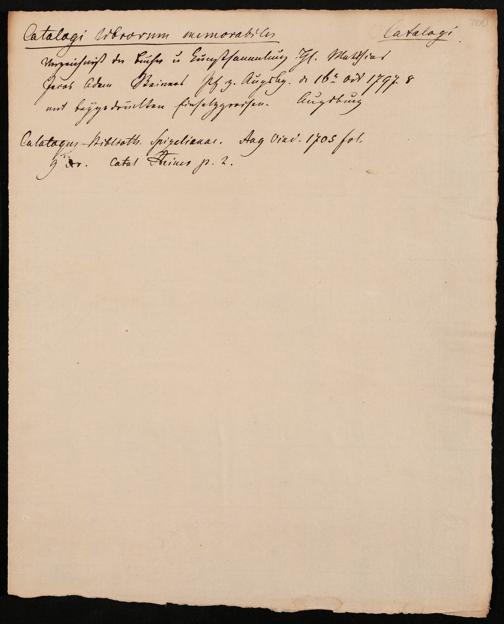 Catalogi librorum memorabiles Catalogi.
Verzeichniß der Bücher u Kunstsammlung Matthias
Jacob Adam Steiners z. Augsbg. d 16t Oct 1797. 8
mit beygedruckten Augsburg
Catalogus Biblioth. Spizelianae. Aug Vind. 1705 fol.
9 Catal Steiner p. 2.